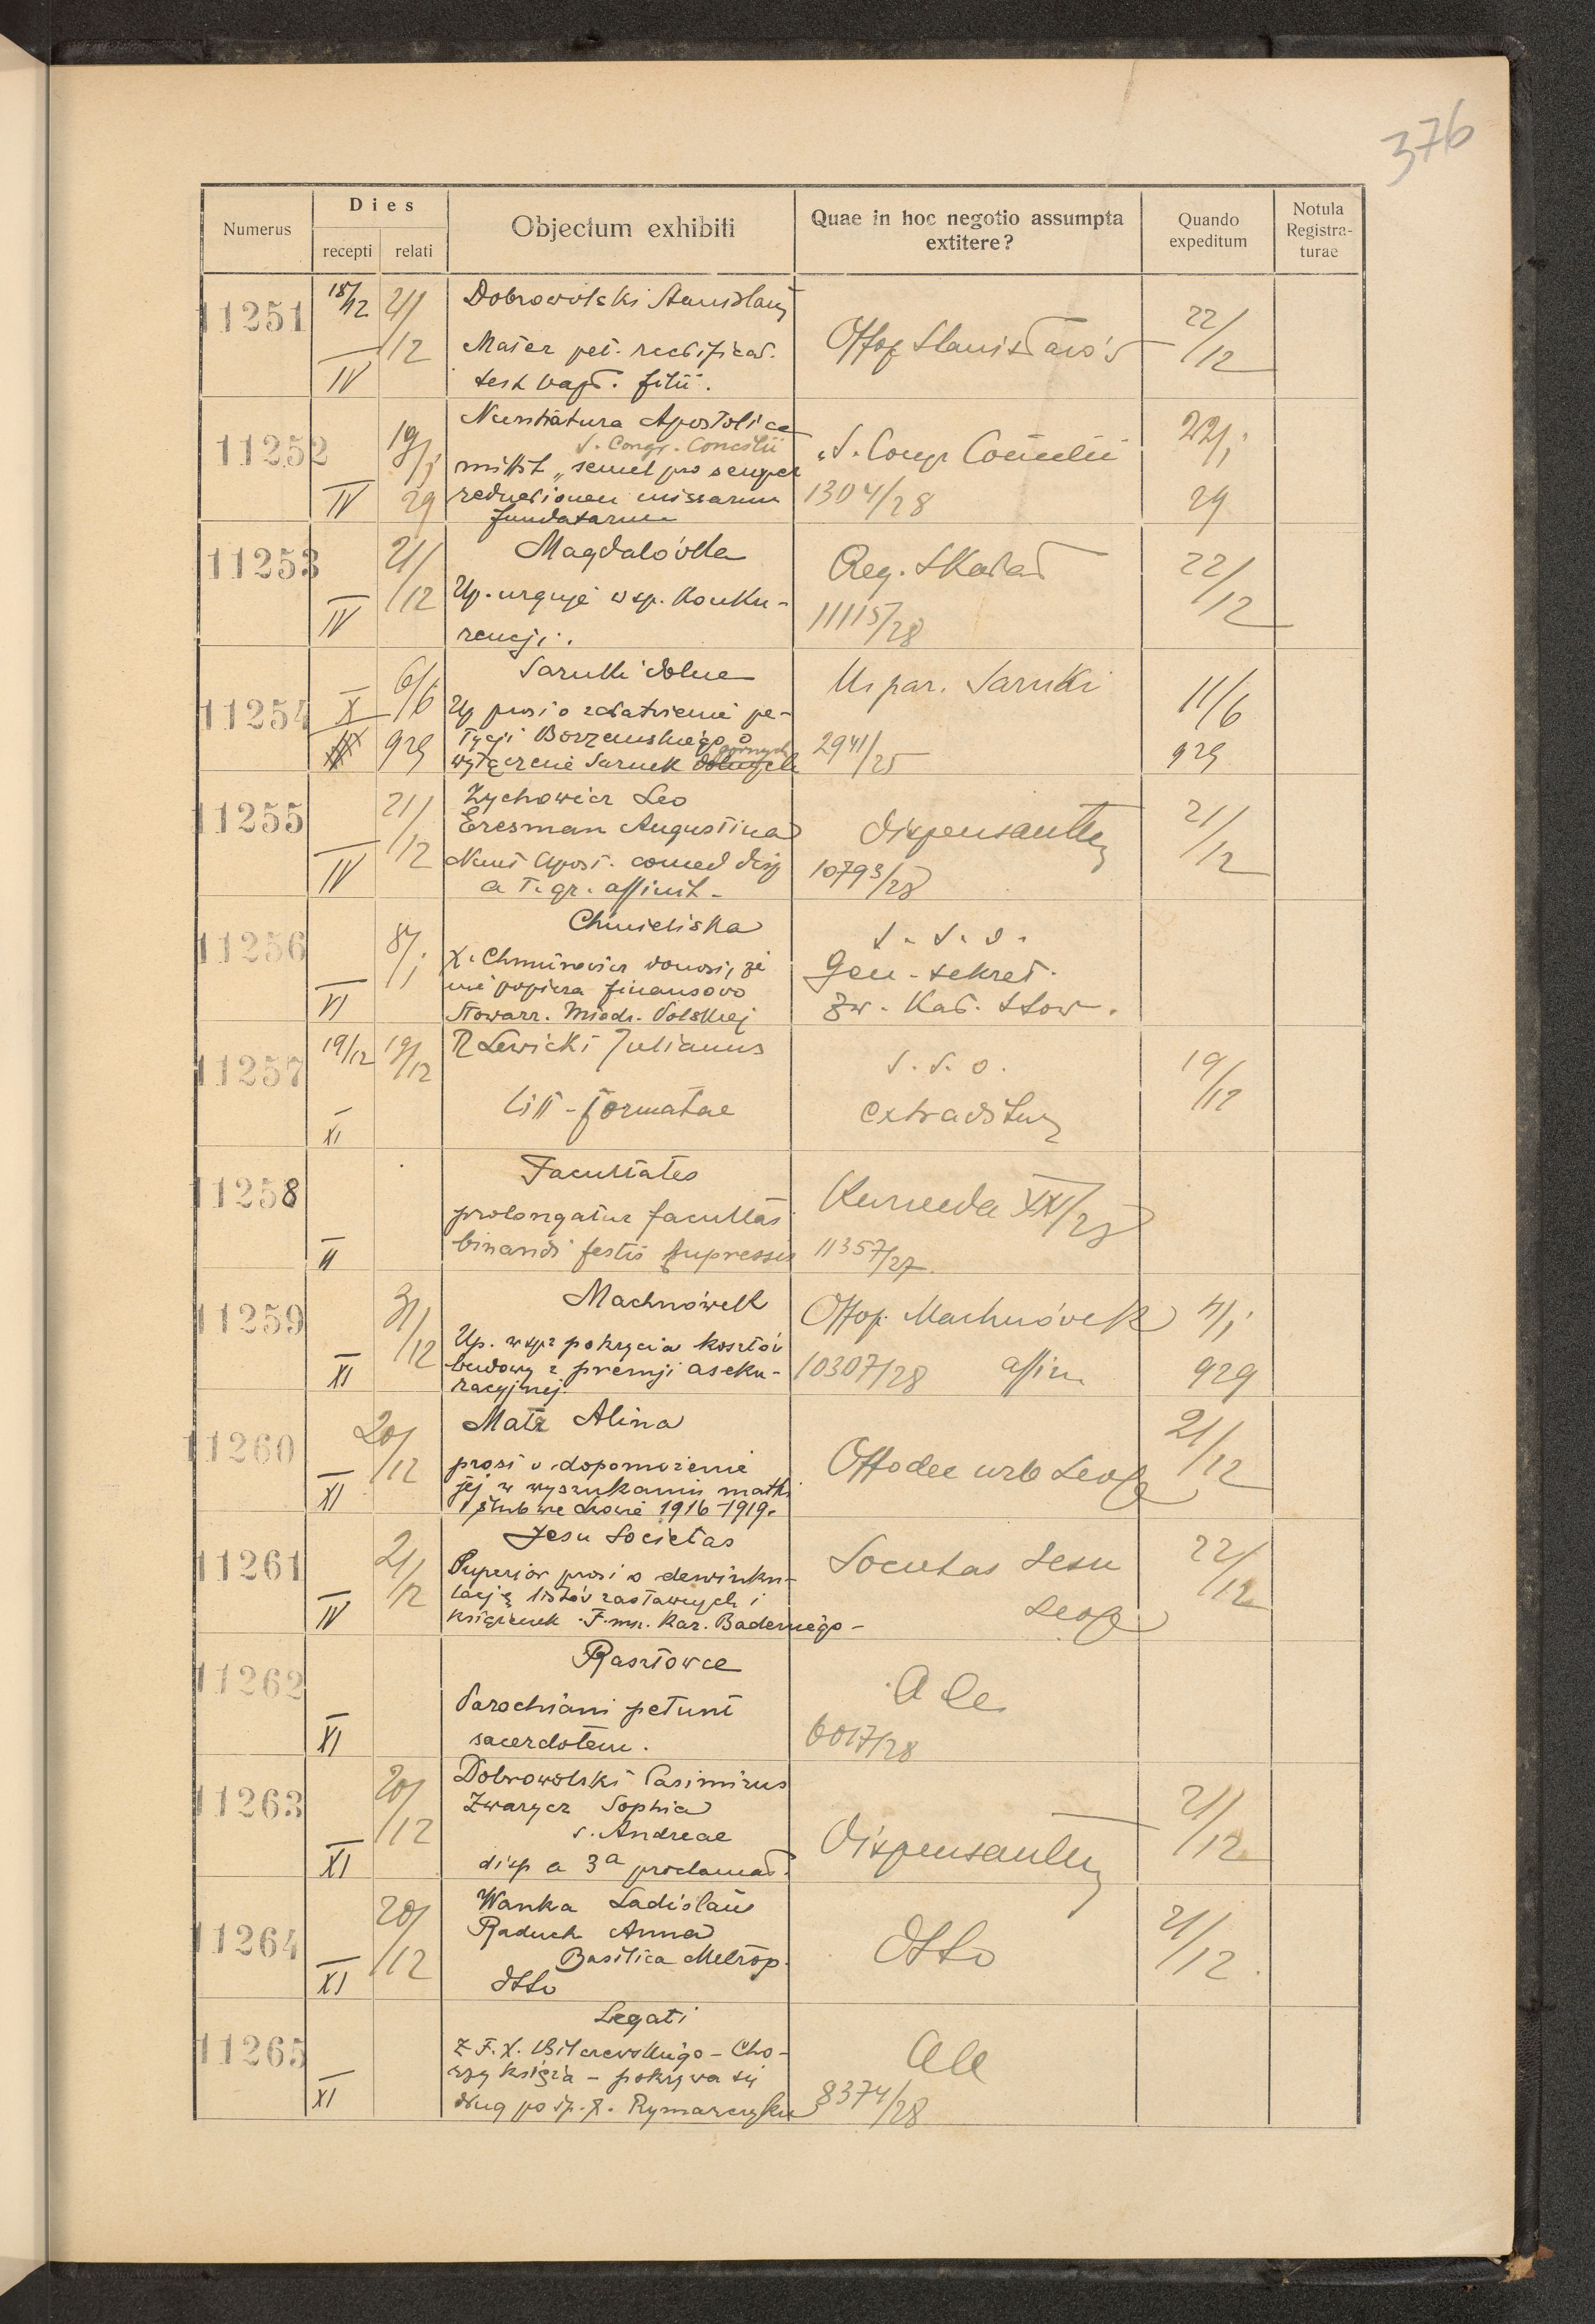 376
Numerus
Dies
recepti
relati
Objectum exhibiti
Quae in hoc negotio assumpta
extitere?
Quando
expeditum
Notula
Registra-
turae
11251
18/12
21/12
IV
Dobrowolski Stanislaus
Mater pet. rectificat.
test bapt. filii.
Offop Stanisławów
22/12
11252
19/I
29
IV
Nuntiatura Apostolica
S. Congr. Concilii
mittit „semel pro semper
reductionem missarum
fundatarum
S. Congr Concilii
1304/28
22/I
29
11253
21/12
IV
Magdalówka
Up. urguje w sp. konku-
rencji.
Reg. Skałat
11115/28
22/12
11254
X
6/6
929
Sarnki dolne
Up prosi o załatwienie pe-
tycji Borzemskiego o
wyłączenie Sarnek dolnych
górnych
Us par. Sarnki
2941/25
11/6
929
11255
21/12
IV
Zychowicz Leo
Eresman Augustina
Nunt Apost. comed disp
a I. gr. affinit.
Dispensantur
10793/28
21/12
11256
8/I
VI
Chmieliska
X. Chmurowicz donosi, że
nie popiera finansowo
Stowarz. Młodz. Polskiej
S. S. O.
Gen. sekret.
Zw. Kat. Stow.
11257
19/12
19/12
XI
R Lewicki Julianus
litt. formatae
S. S. O.
extraditur
19/12
11258
II
Facultates
prolongatur facultas
binandi festis supressis
Kurrenda XV/28
11357/27
11259
31/12
XI
Machnówek
Up. w spr pokrycia kosztów
budowy z premji aseku-
racyjnej
Offop. Machnówek
10307/28 affirm.
4/I
929
11260
20/12
XI
Matz Alina
prosi o dopomożenie
jej w wyszukaniu matki
ślub we Lwowie 1916-1919.
Offodec urb Leop
21/12
11261
21/12
IV
Jesu Societas
Superior prosi o dewinku-
lację listów zastawnych i
książeczek F. mn. Kaz. Badeniego -
Societas Jesu
Leop
22/12
11262
XI
Rasztowce
Parochiani petunt
sacerdotem.
Ale
6017/28
11263
20/12
XI
Dobrowolski Casimirus
Zwarycz Sophia
s. Andreae
disp a 3a proclamat.
Dispensantur
21/12
11264
20/12
XI
Wanka Ladislaus
Raduch Anna
Basilica Metrop.
dtto
dtto
21/12
11265
XI
Legati
Z F. X. Bilczewskiego - Cho-
rzy księża - pokrywa się
dług po śp. X. Rymarczyku
Ale
8374/28